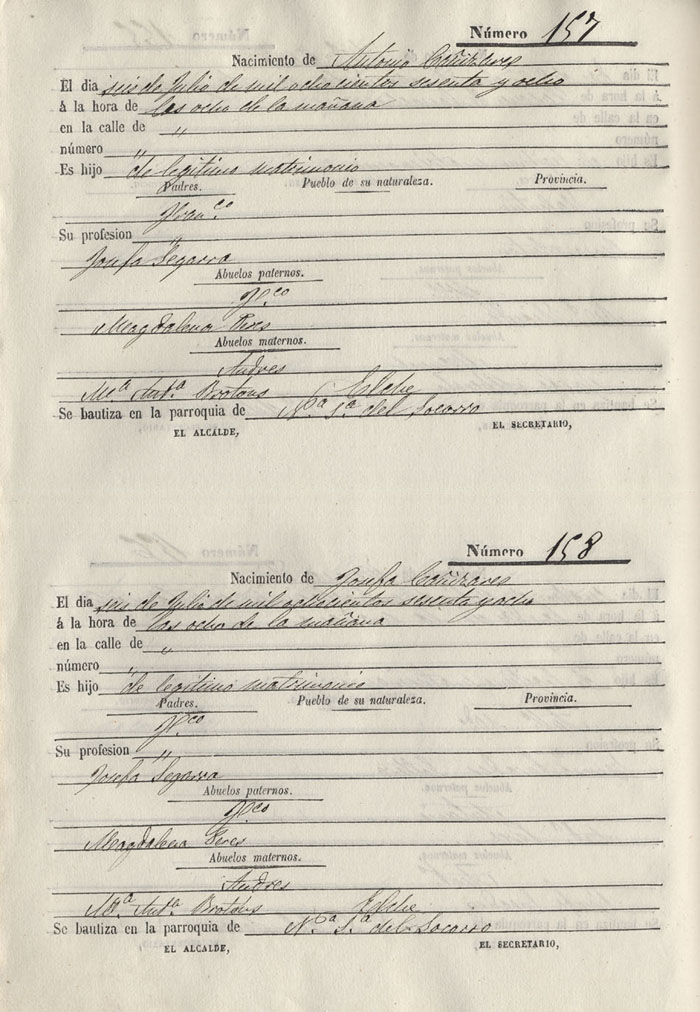 Número 157
Nacimiento de Antonio Cañizares
El dia seis de Julio de mil ochocientos sesenta y ocho
á la hora de las ocho de la mañana
en la calle de "
número "
Es hijo de legitimo matrimonio
Padres. Pueblo de su naturaleza. Provincia.
Fran.co
Su profesion "
Josefa Segarra
Abuelos paternos.
Fco
Magdalena Peres
Abuelos maternos.
Andres
Ma Anta Brotons Elche
Se bautiza en la parroquia de Na Sa del Socorro
EL ALCALDE, EL SECRETARIO,
Número 158
Nacimiento de Josefa Cañizares
El dia seis de Julio de mil ochocientos sesenta y ocho
á la hora de las ocho de la mañana
en la calle de "
número "
Es hijo de legitimo matrimonio
Padres. Pueblo de su naturaleza. Provincia.
Fco
Su profesion "
Josefa Segarra
Abuelos paternos.
Fco
Magdalena Peres
Abuelos maternos.
Andres
Ma Anta Brotons Elche
Se bautiza en la parroquia de Na Sa del Socorro
EL ALCALDE, EL SECRETARIO,